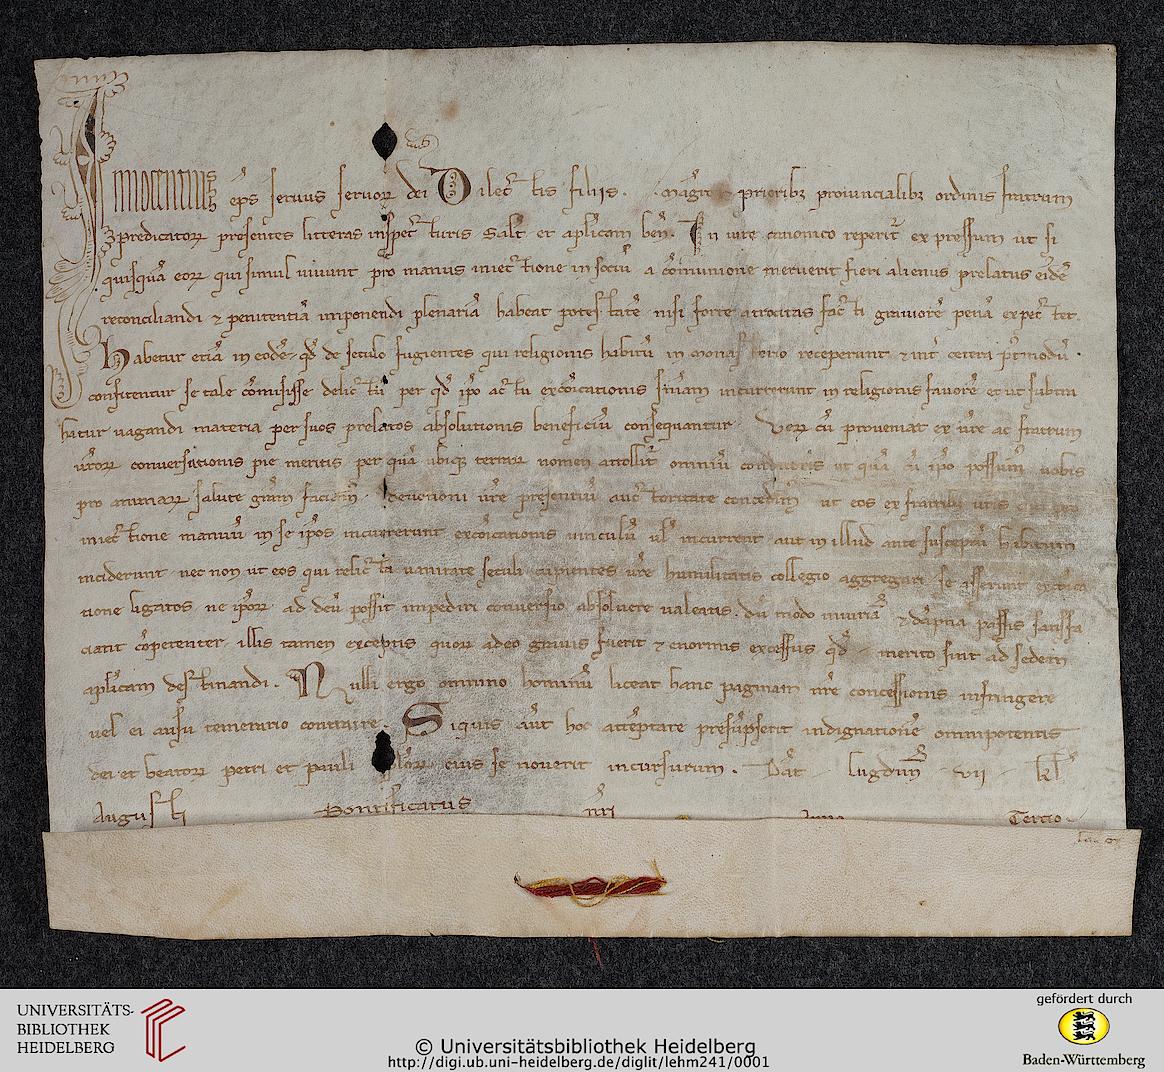 Innocentius ep̅s seruus seruoꝝ dei Dilectis filiis . Magr̅o prioribꝫ prouincialibꝫ ordinis fratrum
predicatoꝝ presentes litteras inspecturis Salt̅ et apl̅icam ben̅. In iure canonico reperit᷑ expressum ut si
quisquā eoꝝ qui simul uiuunt pro manus iniectione in sociū a cōmunione meruerit fieri alienus prelatus eidē
reconciliandi ⁊ penitentiā imponendi plenariā habeat potestatē nisi forte atrocitas facti grauiorē penā expectet.
Habetur etiā in eodē qd̅ de seculo fugientes qui religionis habitū in monasterio receperunt ⁊ int̅ ceteri p̅tmodū .
confitentur se tale cōmisisse delictū per qd̅ ip̅o actu excōicationis sn̅iam incurrerunt in religionis fauorē et ut subtra
hatur uagandi materia per suos prelatos absolutionis beneficiū consequantur Veꝝ cū proueniat ex ur̅e ac fratrum
ur̅oꝝ conuersationis pie meritis per quā ubiqꝫ terraꝝ nomen attollit᷑ omniū ut quā cū ip̅o possum̅ uobis
pro animaꝝ salute gr̅am faciem̅ . deuotioni ur̅e presentiū auctoritate concedim̅ ut eos ex fratribꝫ ur̅is
iniectione manuū in se ip̅os incurrerunt excōicationis uinculū ul̅ incurrent aut in illud ante susceptū habitum
inciderunt nec non ut eos qui relicta uanitate seculi cupientes ur̅e humilitatis collegio aggregari se asserunt excōica
tione ligatos ne ip̅oꝝ ad deū possit impediri conuersio absoluere ualeatis . dū modo iniuriā ⁊ dāpna passis satisfa
ciant cōpetenter illis tamen exceptis quoꝝ adeo grauis fuerit ⁊ enormis excessus qd̅ merito sint ad sedem
apl̅icam destinandi . Nulli ergo omnino hominū liceat hanc paginam nr̅e concessionis infringere
uel ei ausu temerario contraire . Siquis aūt hoc attēptare presūpserit indignationē omnipotentis
dei et beatoꝝ petri et pauli apl̅oꝝ eius se nouerit incursurum . Dat̅ lugdun̅ vii kl̅
Augusti Pontificatus nr̅i Anno Tertio .
UNIVERSITÄTS-
BIBLIOTHEK
HEIDELBERG
© Universitätsbibliothek Heidelberg
http://digi.ub.uni-heidelberg.de/diglit/lehm241/0001
gefördert durch
Baden-Württemberg